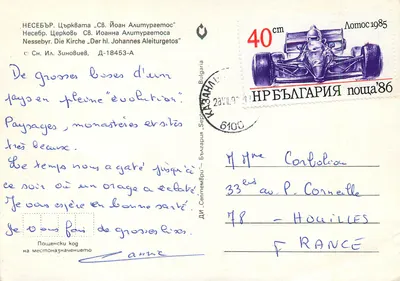 НЕСЕБЪР. Църквата „Св. Йоан Алитургетос"
Несебр. Церковь Св. Иоанна Алитургетоса
Nessebyr. Die Kirche „Der hl. Johannes Aleiturgetos"
г. Сн. Ил. Зиновиев, Д-18453-А
De grosses bises d'un
pays en pleine "évolution".
Paysages, monastères et sites
très beaux.
Le temps nous a gaté jusqu'à
ce soir où un orage a éclaté.
Je vous espère en bonne santé.
Je vous fais de grosses bises.
Пощенски код
на местоназначението
ДИ „Септември" — България
Bulgaria
40 ст
Лотос 1985
НР БЪЛГАРИЯ поща '86
КАЗАНЛ
6100
M Mme
33 av P. Corneille
78 - HOUILLES
FRANCE